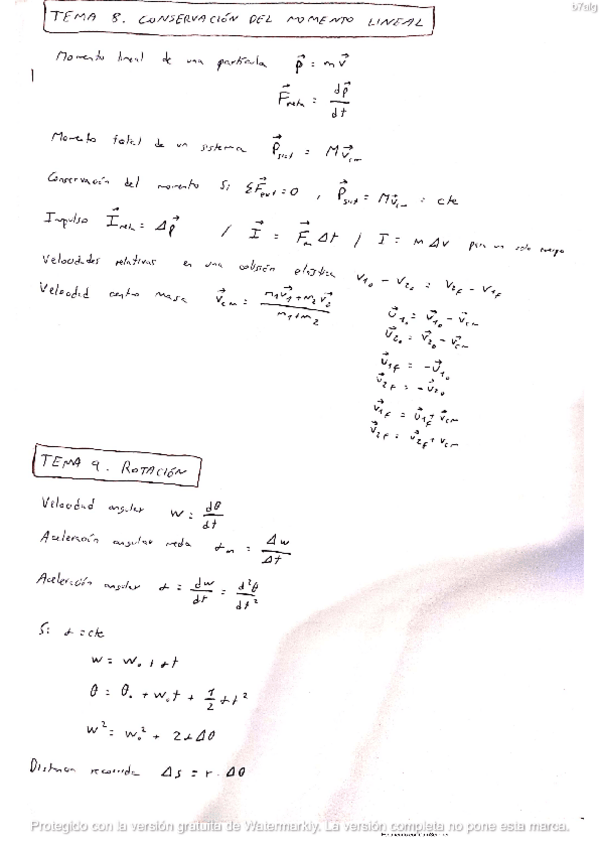 b7alg
TEMA 8. CONSERVACIÓN DEL MOMENTO LINEAL
Momento lineal de una partícula p⃗ = mv⃗
F⃗neta = dp⃗/dt
Momento total de un sistema P⃗sist = Mv⃗cm
Conservación del momento Si ΣF⃗ext = 0 , P⃗sist = Mv⃗cm = cte
Impulso I⃗neta = Δp⃗ / I⃗ = F⃗m Δt / I = m Δv para un solo cuerpo
Velocidades relativas en una colisión elástica v₁₀ - v₂₀ = v2f - v1f
Velocidad centro masa v⃗cm = (m₁v⃗₁ + m₂v⃗₂)/(m₁+m₂)
u⃗₁₀ = v⃗₁₀ - v⃗cm
u⃗₂₀ = v⃗₂₀ - v⃗cm
u⃗1f = -u⃗₁₀
u⃗2f = -u⃗₂₀
v⃗1f = u⃗1f + v⃗cm
v⃗2f = u⃗2f + vcm
TEMA 9. ROTACIÓN
Velocidad angular w = dθ/dt
Aceleración angular media αm = Δw/Δt
Aceleración angular α = dw/dt = d²θ/dt²
Si α = cte
w = w₀ + αt
θ = θ₀ + w₀t + 1/2 αt²
w² = w₀² + 2αΔθ
Distancia recorrida Δs = r · Δθ
Protegido con la versión gratuita de Watermarkly. La versión completa no pone esta marca.